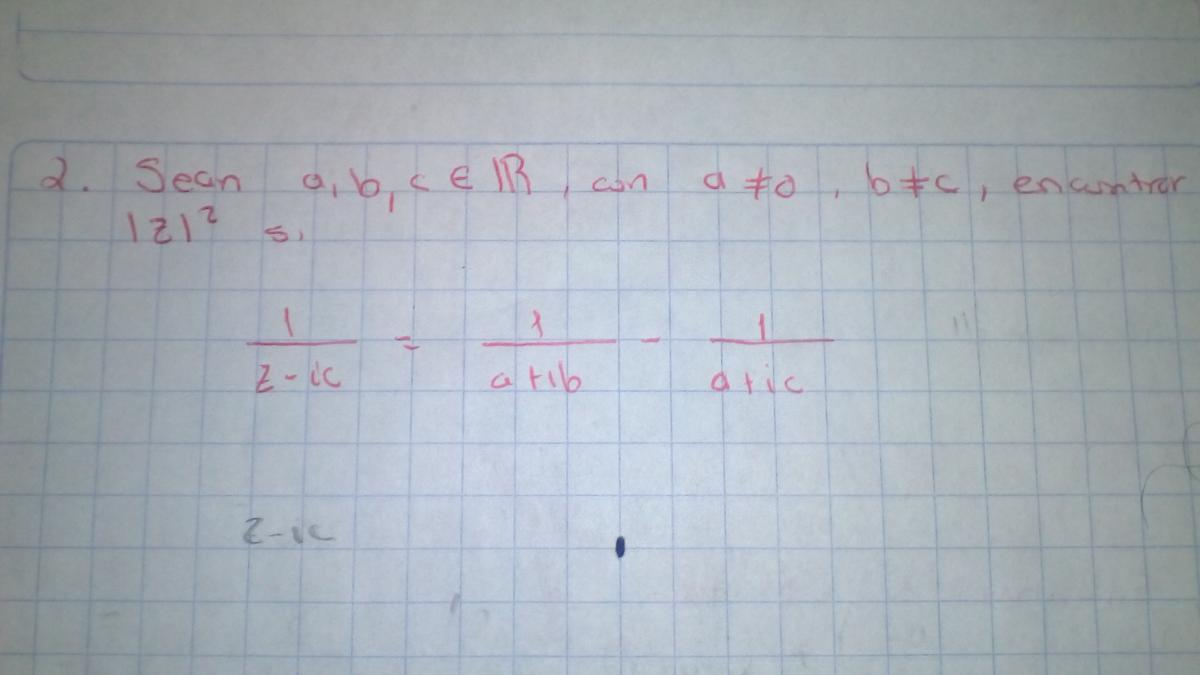 2. Sean a, b, c ∈ ℝ, con a ≠ 0, b ≠ c, encontrar
|z|² si
1/(z-ic) = 1/(a+ib) - 1/(a+ic)
z-ic